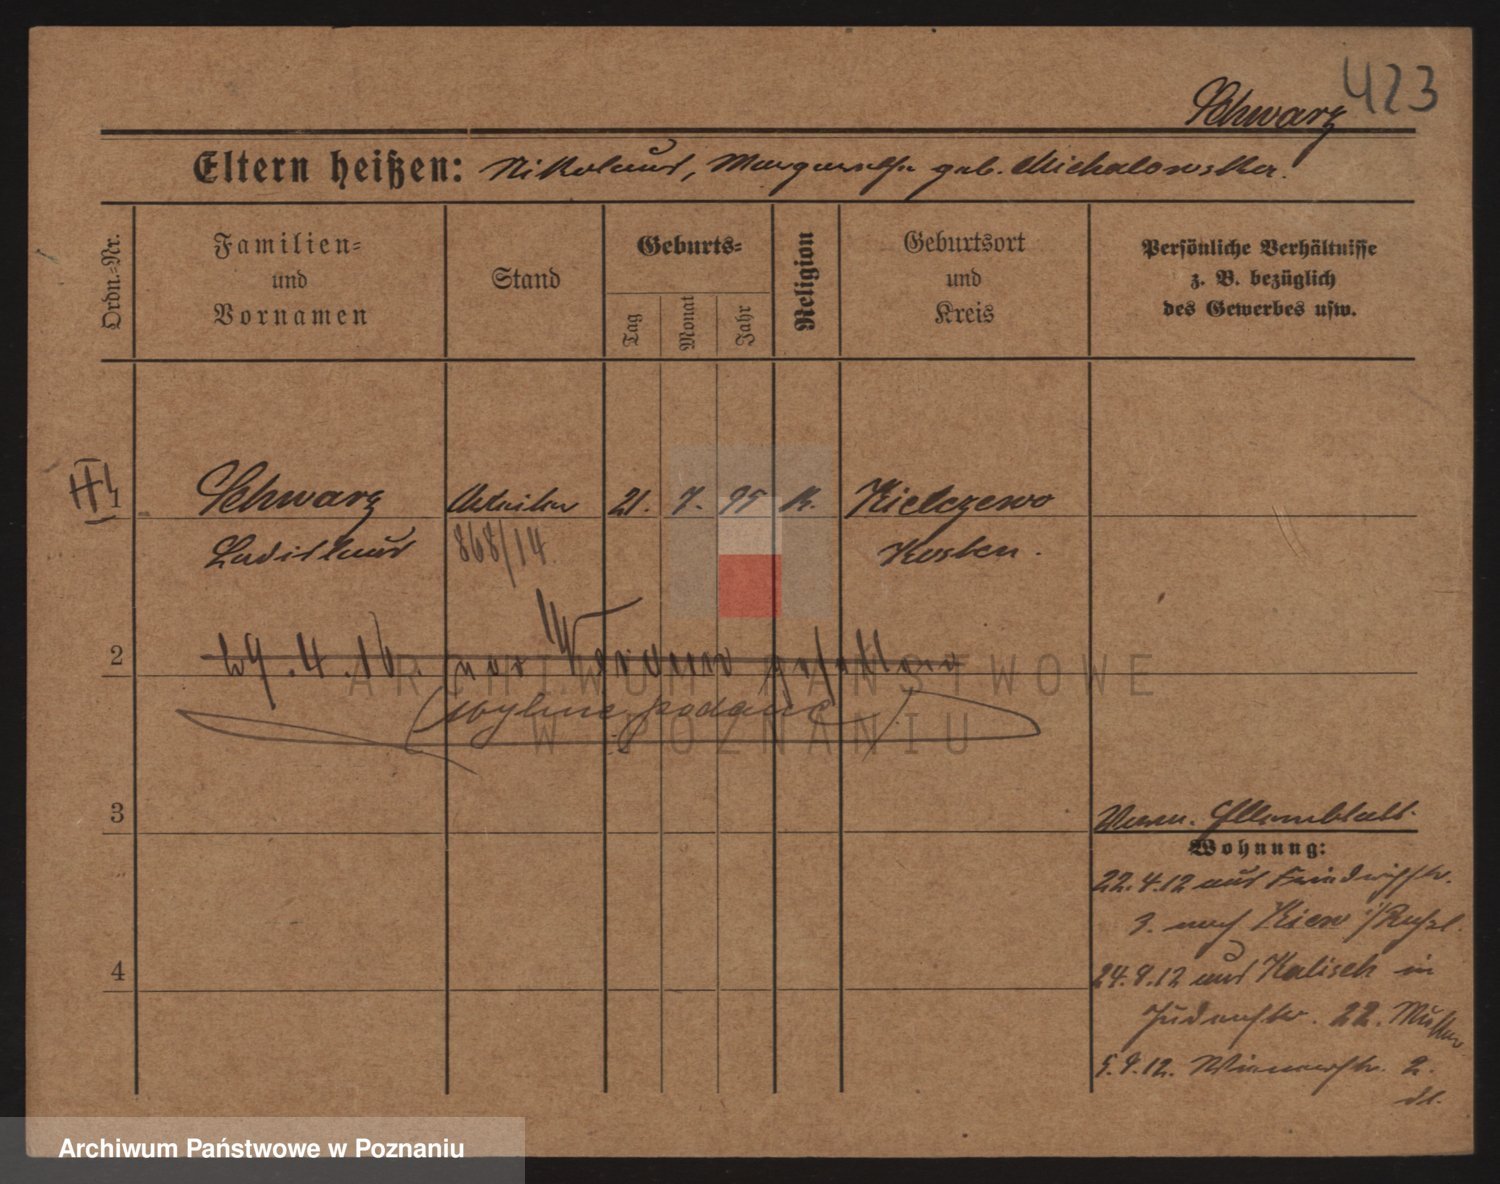 423
Schwarz
Eltern heißen: Nikolaus, Margarethe geb. Michalowska.
Ordn.=Nr.
Familien=
und
Vornamen
Stand
Geburts=
Tag
Monat
Jahr
Religion
Geburtsort
und
Kreis
Persönliche Verhältnisse
z. B. bezüglich
des Gewerbes usw.
Schwarz Arbeiter 21. 7. 95 k. Kielczewo
Ladislaus 868/14 Kosten.
2 29.4.16. vor Verdun gefallen
(mylne podanie)
3
Wohnung:
22.4.12 aus
3. nach Kiew i/Rußl.
4
24.8.12 aus Kalisch in
Judenstr. 22. Mutter
5.9.12. Wienerstr. 2.
dl.
ARCHIWUM PAŃSTWOWE
W POZNANIU
Archiwum Państwowe w Poznaniu